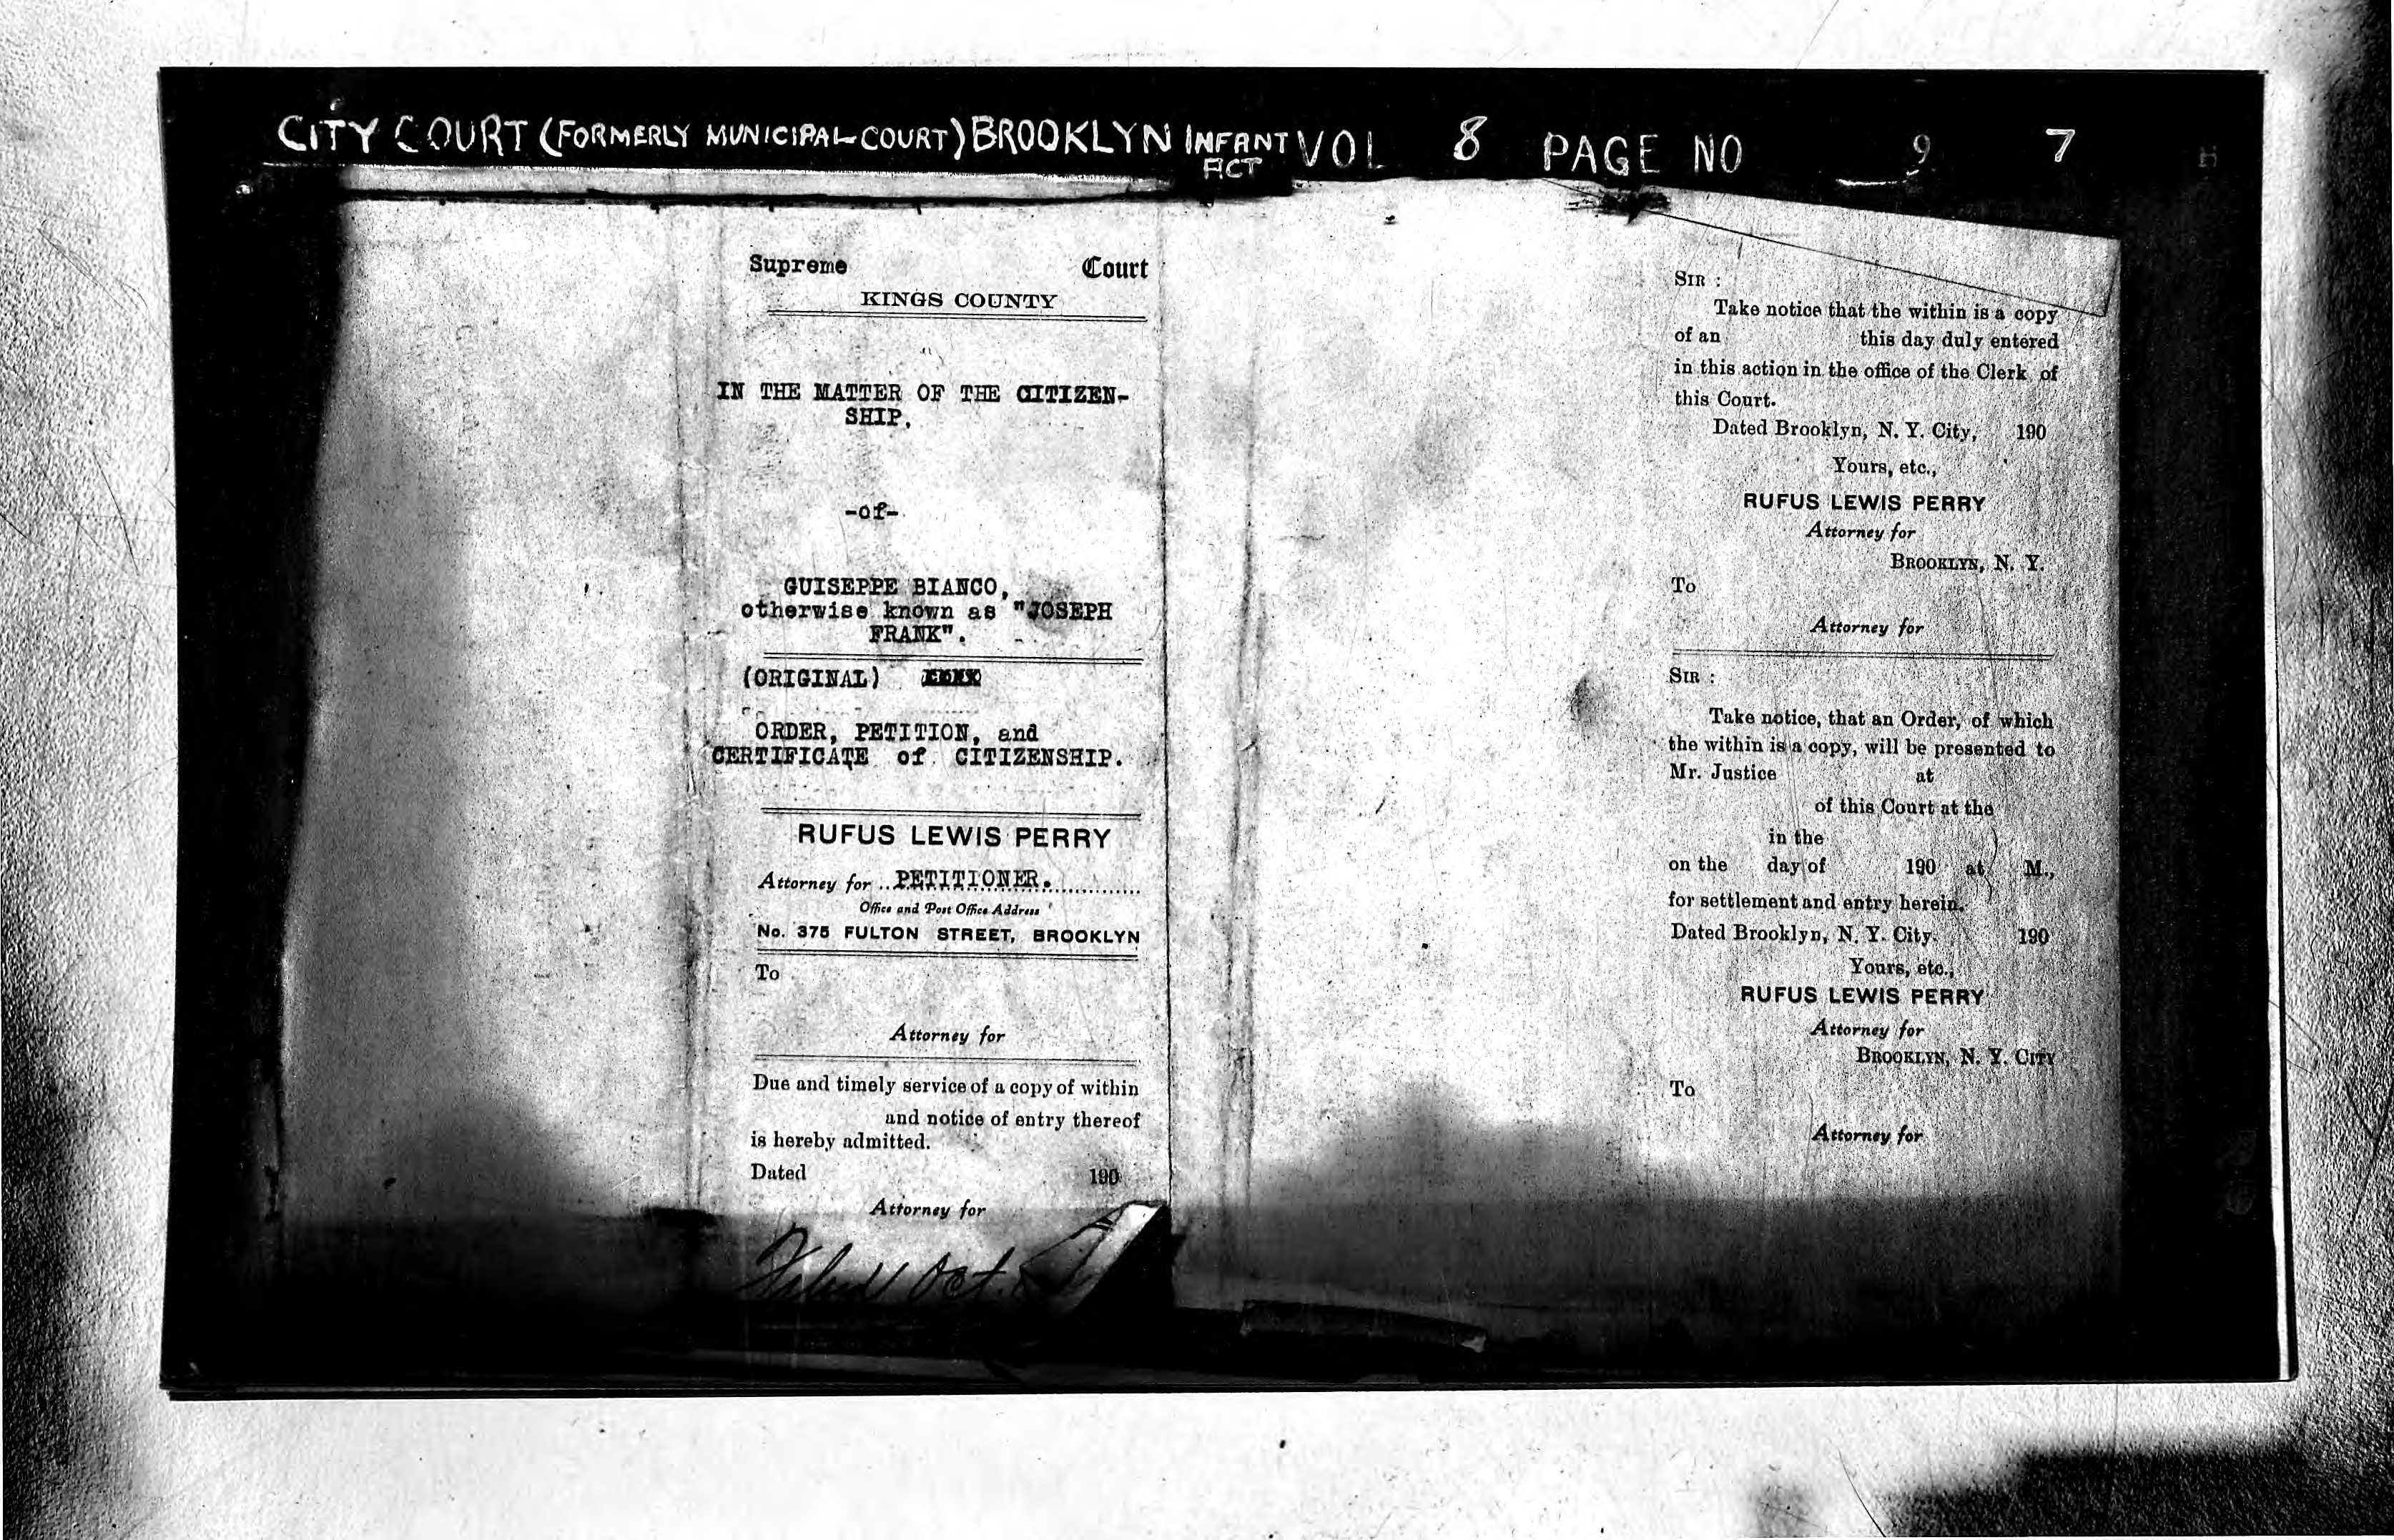 CITY COURT (FORMERLY MUNICIPAL COURT) BROOKLYN INFANT ACT VOL 8 PAGE NO 9 7
Supreme Court
KINGS COUNTY
IN THE MATTER OF THE CITIZEN-
SHIP.
-of-
GUISEPPE BIANCO,
otherwise known as "JOSEPH
FRANK".
(ORIGINAL)
ORDER, PETITION, and
CERTIFICATE of CITIZENSHIP.
RUFUS LEWIS PERRY
Attorney for PETITIONER.
Office and Post Office Address
No. 375 FULTON STREET, BROOKLYN
To
Attorney for
Due and timely service of a copy of within
and notice of entry thereof
is hereby admitted.
Dated 190
Attorney for
Oct.
SIR :
Take notice that the within is a copy
of an this day duly entered
in this action in the office of the Clerk of
this Court.
Dated Brooklyn, N. Y. City, 190
Yours, etc.,
RUFUS LEWIS PERRY
Attorney for
BROOKLYN, N. Y.
To
Attorney for
SIR :
Take notice, that an Order, of which
the within is a copy, will be presented to
Mr. Justice at
of this Court at the
in the
on the day of 190 at M.,
for settlement and entry herein.
Dated Brooklyn, N. Y. City. 190
Yours, etc.,
RUFUS LEWIS PERRY
Attorney for
BROOKLYN, N. Y. CITY
To
Attorney for